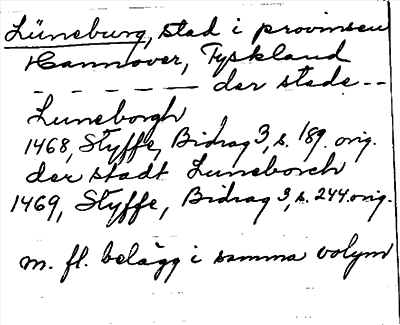 Lüneburg, stad i provinsen
Hannover, Tyskland
- - - - - - der stede - -
Luneborgh
1468, Styffe, Bidrag 3, s. 189. orig.
der stadt Luneborch
1469, Styffe, Bidrag 3, s. 244. orig.
m. fl. belägg i samma volym